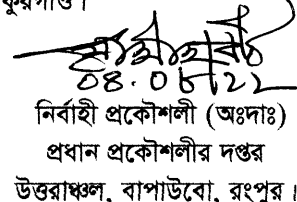 কুরগাঁও।
০৪.০৮.২২
নির্বাহী প্রকৌশলী (অঃদাঃ)
প্রধান প্রকৌশলীর দপ্তর
উত্তরাঞ্চল, বাপাউবো, রংপুর।